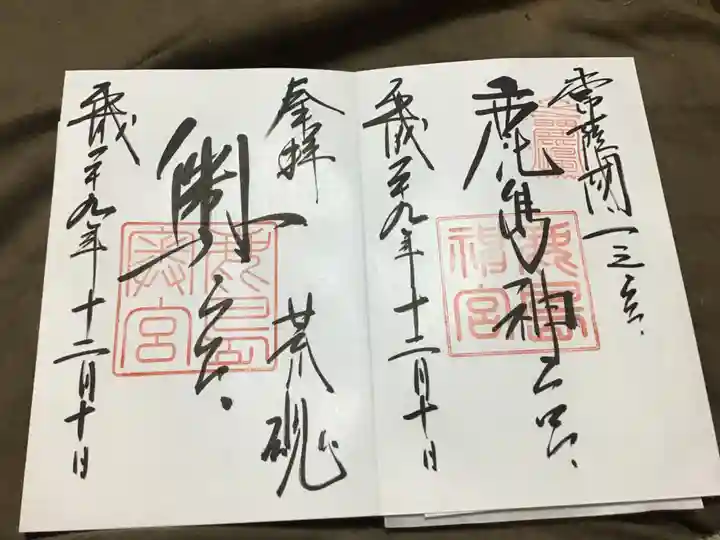 常陸國一之宮
鹿島神宮
平成二十九年十二月十日
鹿島神宮
奉拝
荒魂
奥宮
平成二十九年十二月十日
鹿島奥宮